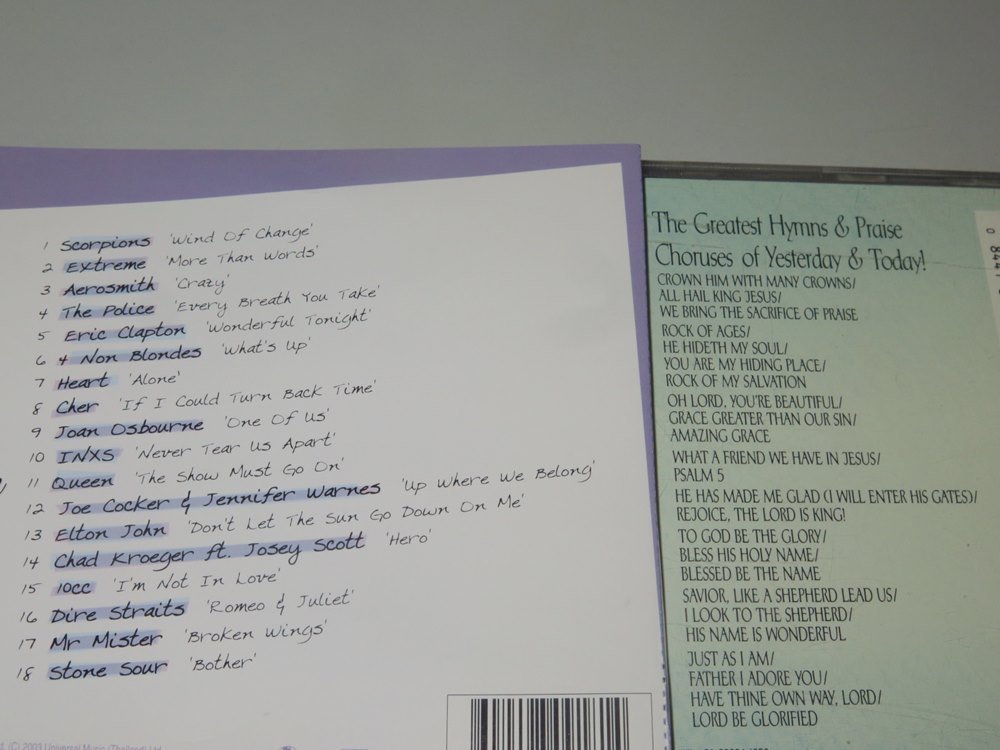 1 Scorpions 'Wind Of Change'
2 Extreme 'More Than Words'
3 Aerosmith 'Crazy'
4 The Police 'Every Breath You Take'
5 Eric Clapton 'Wonderful Tonight'
6 4 Non Blondes 'What's Up'
7 Heart 'Alone'
8 Cher 'If I Could Turn Back Time'
9 Joan Osbourne 'One Of Us'
10 INXS 'Never Tear Us Apart'
11 Queen 'The Show Must Go On'
12 Joe Cocker & Jennifer Warnes 'Up Where We Belong'
13 Elton John 'Don't Let The Sun Go Down On Me'
14 Chad Kroeger ft. Josey Scott 'Hero'
15 10cc 'I'm Not In Love'
16 Dire Straits 'Romeo & Juliet'
17 Mr Mister 'Broken Wings'
18 Stone Sour 'Bother'
(C) 2003 Universal Music (Thailand) Ltd
The Greatest Hymns & Praise
Choruses of Yesterday & Today!
CROWN HIM WITH MANY CROWNS/
ALL HAIL KING JESUS/
WE BRING THE SACRIFICE OF PRAISE
ROCK OF AGES/
HE HIDETH MY SOUL/
YOU ARE MY HIDING PLACE/
ROCK OF MY SALVATION
OH LORD, YOU'RE BEAUTIFUL/
GRACE GREATER THAN OUR SIN/
AMAZING GRACE
WHAT A FRIEND WE HAVE IN JESUS/
PSALM 5
HE HAS MADE ME GLAD (I WILL ENTER HIS GATES)/
REJOICE, THE LORD IS KING!
TO GOD BE THE GLORY/
BLESS HIS HOLY NAME/
BLESSED BE THE NAME
SAVIOR, LIKE A SHEPHERD LEAD US/
I LOOK TO THE SHEPHERD/
HIS NAME IS WONDERFUL
JUST AS I AM/
FATHER I ADORE YOU/
HAVE THINE OWN WAY, LORD/
LORD BE GLORIFIED